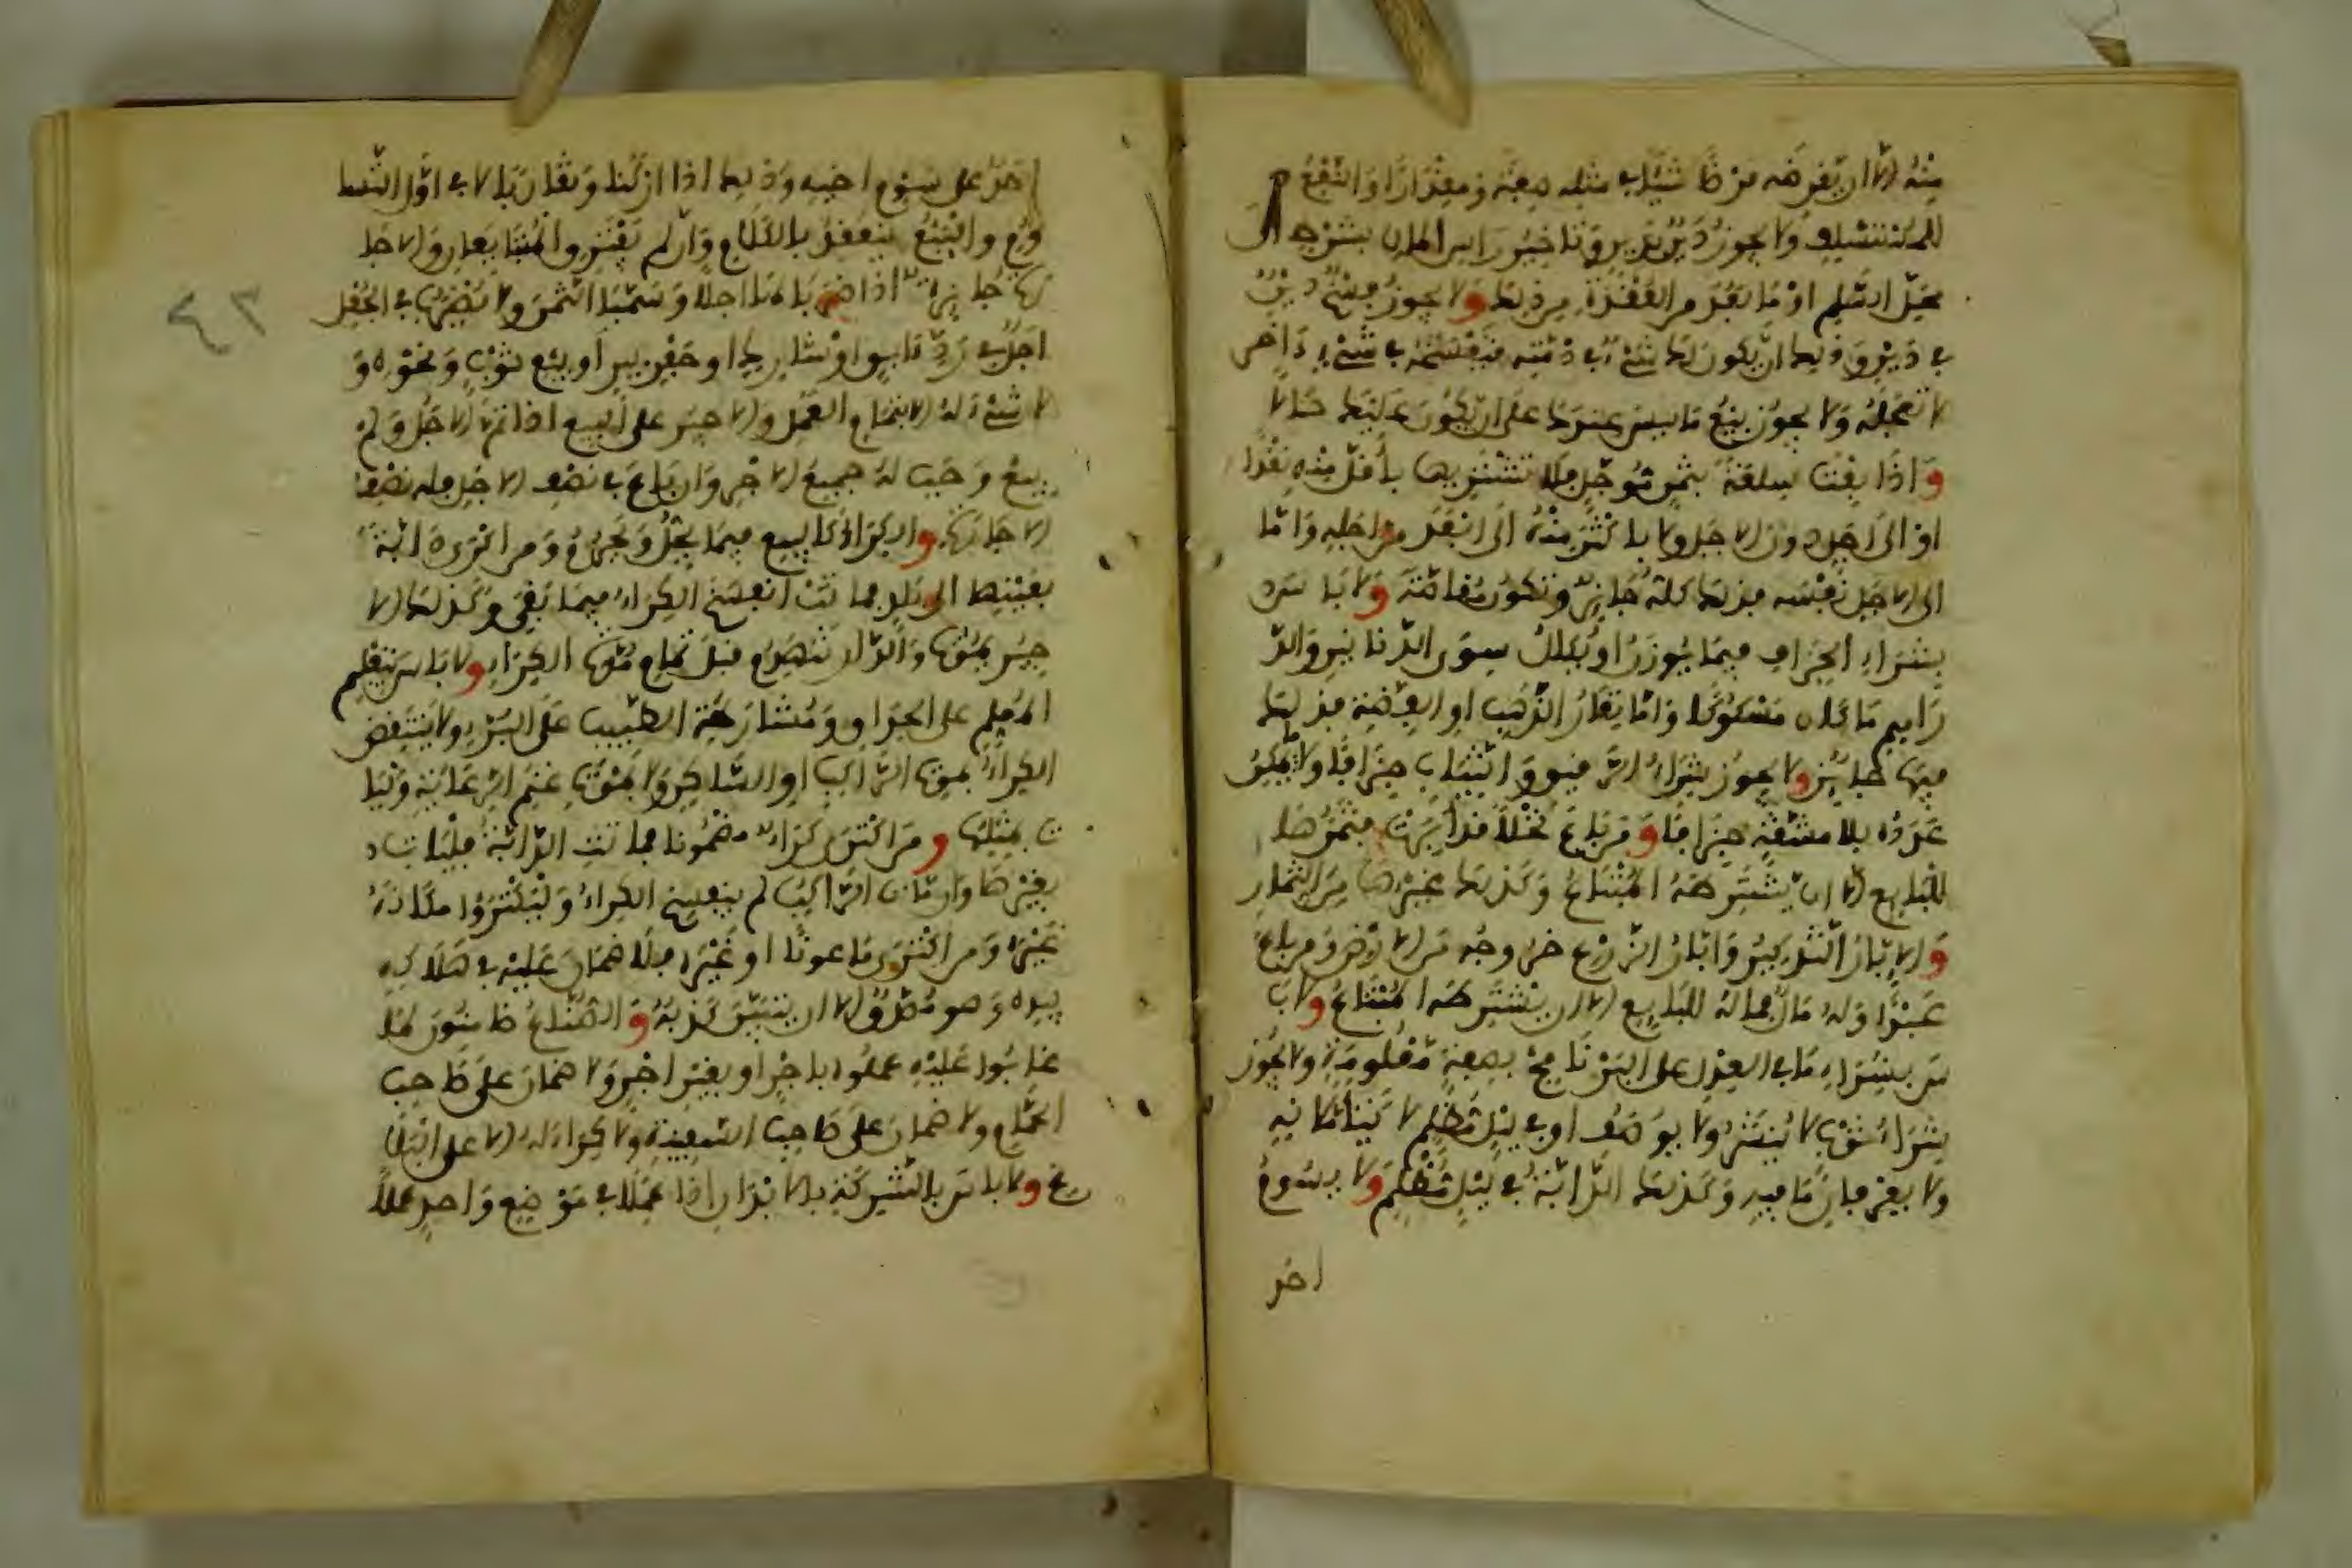 منه الا ان يقرضه قرضا شيئا في مثله صفة ومقدارا والنفع
للمتسلف ولا يجوز دين بدين وتاخير راس المال بشرط الى
محل السلم او ما بعد من العقدة من ذلك ولا يجوز فسخ دين
في دين وذلك ان يكون لك شيء في ذمته فتفسخه في شيء ءاخر
لا تتعجله ولا يجوز بيع ما ليس عندك على ان يكون عليك حالا
واذا بعت سلعة بثمن مؤجل فلا تشتريها بأقل منه نقدا
او الى اجل دون الاجل ولا باكثر منه الى ابعد من اجله واما
الى الاجل نفسه فذلك كله جائز وتكون مقاصة ولا باس
بشراء الجزاف فيما يوزن او يكال سوى الدنانير والد
راهم ما كان مسكوكا واما نقار الذهب او الفضة فذلك
فيها جائز ولا يجوز شراء الرقيق والثياب جزافا ولا ما يمكن
عدده بلا مشقة جزافا ومن باع نخلا قد ابرت فثمرها
للبايع الا ان يشترطه المبتاع وكذلك غيرها من الثمار
والابار التذكير وابار الزرع خروجه من الارض ومن باع
عبدا وله مال فماله للبايع الا ان يشترطه المبتاع ولا با
س بشراء ما في العدل على البرنامج بصفة معلومة ولا يجوز
شراء ثوب لا ينشر ولا يوصف او في ليل مظلم لا يتاملانه
ولا يعرفان ما فيه وكذلك الدابة في ليل مظلم ولا يسوم
احد
احد على سوم اخيه وذلك اذا اركنا وتقاربا لا في اول التسا
وم والبيع ينعقد بالكلام وان لم يفترق المتبايعان والاجا
رة جايزة اذا ضربا لها اجلا وسميا الثمن ولا يضرب في الجعل
اجل في رد ءابق او شارد او حفر بير او بيع ثوب ونحوه و
لا شيء له الا بتمام العمل والاجير على البيع اذا تم الاجل ولم
يبع وجب له جميع الاجر وان باع في نصف الاجل فله نصف
الاجارة والكراء كالبيع فيما يحل ويحرم ومن اكترى دابة
بعينها الى بلد فماتت انفسخ الكراء فيما بقي وكذلك الا
جير يموت والدار تنهدم قبل تمام مدة الكراء ولا باس بتعليم
المعلم على الحذاق ومشارطة الطبيب على البرء ولا ينتقض
الكراء بموت الراكب او الساكن ولا بموت غنم الرعاية وليا
ت بمثلها ومن اكترى كراء مضمونا فماتت الدابة فليات
بغيرها وان مات الراكب لم ينفسخ الكراء وليكتروا مكانه
غيره ومن اكترى ماعونا او غيره فلا ضمان عليه في هلاكه
بيده وهو مصدق الا ان يتبين كذبه والصناع ضامنون لما
غابوا عليه عملوه باجر او بغير اجر ولا ضمان على صاحب
الحمام ولا ضمان على صاحب السفينة ولا كراء له الا على البلا
غ ولا باس بالشركة بالابدان اذا عملا في موضع واحد عملا